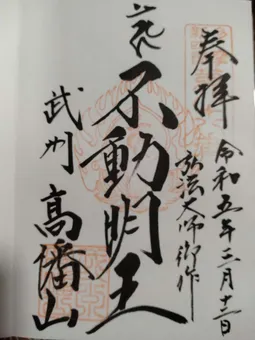 奉拝
令和五年二月十三日
弘法大師御作
不動明王
武州
高幡山